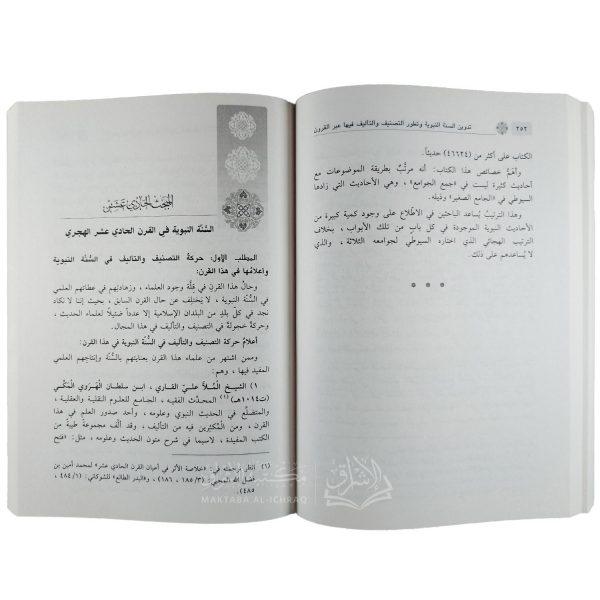 ٢٥٢
تدوين السنة النبوية وتطور التصنيف والتأليف فيها عبر القرون
الكتاب على أكثر من (٤٦٦٢٤) حديثاً.
وأهمُّ خصائص هذا الكتاب: أنه مرتَّبٌ بطريقة الموضوعات مع
أحاديث كثيرة ليست في «جمع الجوامع»، وهي الأحاديث التي زادها
السيوطي في «الجامع الصغير» وذيله.
وهذا الترتيبُ يُساعد الباحثين في الاطِّلاع على وجود كمية كبيرة من
الأحاديث النبوية الموجودة في كل بابٍ من تلك الأبواب، بخلاف
الترتيب الهجائي الذي اختاره السيوطي لجوامعه الثلاثة، والذي
لا يُساعدهم على ذلك.
* * *
المبحث الحادي عشر
السُّنَّة النبوية في القرن الحادي عشر الهجري
المطلب الأول: حركة التصنيف والتأليف في السُّنَّة النبوية
وأعلامُها في هذا القرن:
وحالُ هذا القرن في قِلَّة وجود العلماء، وزهادتِهم في عطائهم العلمي
في السُّنَّة النبوية، لا يَختلِف عن حال القرن السابق، بحيث إننا لا نكاد
نجد في كل بلدٍ من البلدان الإسلامية إلا عدداً ضئيلاً لعلماء الحديث،
وحركةً خجولةً في التصنيف والتأليف في هذا المجال.
أعلامُ حركة التصنيف والتأليف في السُّنَّة النبوية في هذا القرن:
وممن اشتهر من علماء هذا القرن بعنايتهم بالسُّنَّة وإنتاجهم العلمي
المفيد فيها، وهم:
١) الشيخ المُلاَّ عليّ القاري، ابن سلطان الهَرَوي المَكِّي
(ت١٠١٤هـ) (١) المحدِّث الفقيه، الجامع للعلوم النقلية والعقلية،
والمتضلِّع في الحديث النبوي وعلومه، وأحد صدور العلم في هذا
القرن، ومن المُكثِرين فيه من التأليف، وقد ألَّف مجموعةً طيبةً من
الكتب المفيدة، لاسيما في شرح متون الحديث وعلومه، مثل: «فتح
(١) انظر ترجمته في: «خلاصة الأثر في أعيان القرن الحادي عشر» لمحمد أمين بن
فضل الله المحبي (٣/ ١٨٥، ١٨٦)، و«البدر الطالع» للشوكاني (١/ ٤٨٤،
٤٨٥).
مكتبة الإشراق
MAKTABA AL-ICHRAQ